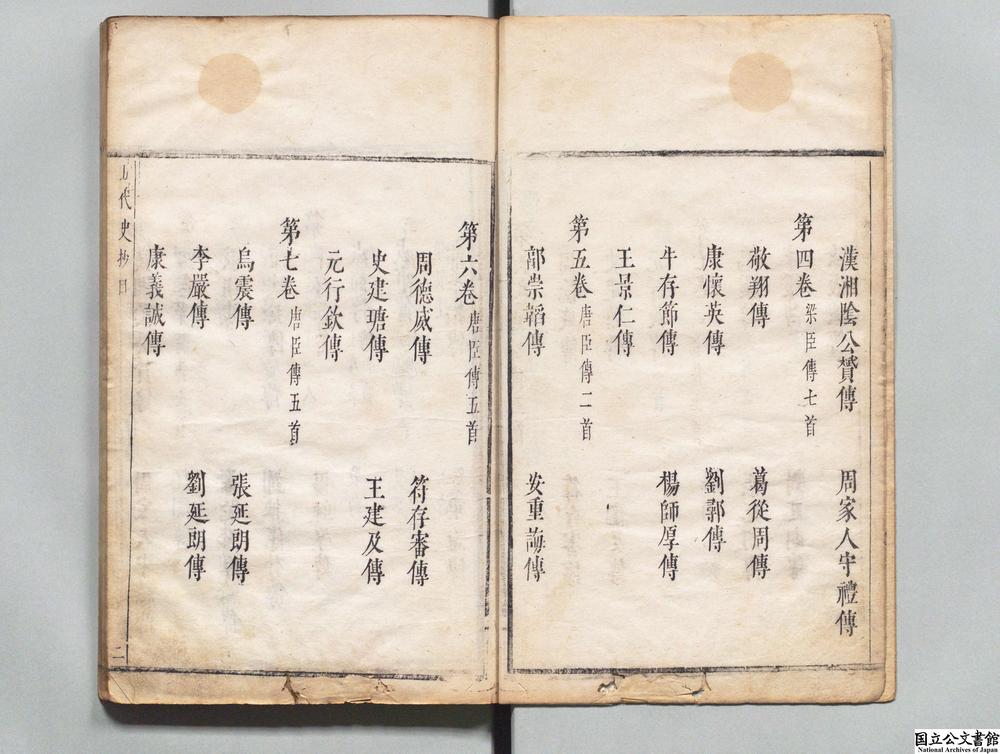 漢湘陰公贇傳　周家人守禮傳
第四卷 梁臣傳七首
敬翔傳　葛從周傳
康懷英傳　劉鄩傳
牛存節傳　楊師厚傳
王景仁傳
第五卷 唐臣傳二首
郭崇韜傳　安重誨傳
第六卷 唐臣傳五首
周德威傳　符存審傳
史建瑭傳　王建及傳
元行欽傳
第七卷 唐臣傳五首
烏震傳　張延朗傳
李嚴傳　劉延朗傳
康義誠傳
五代史抄目
二
国立公文書館
National Archives of Japan